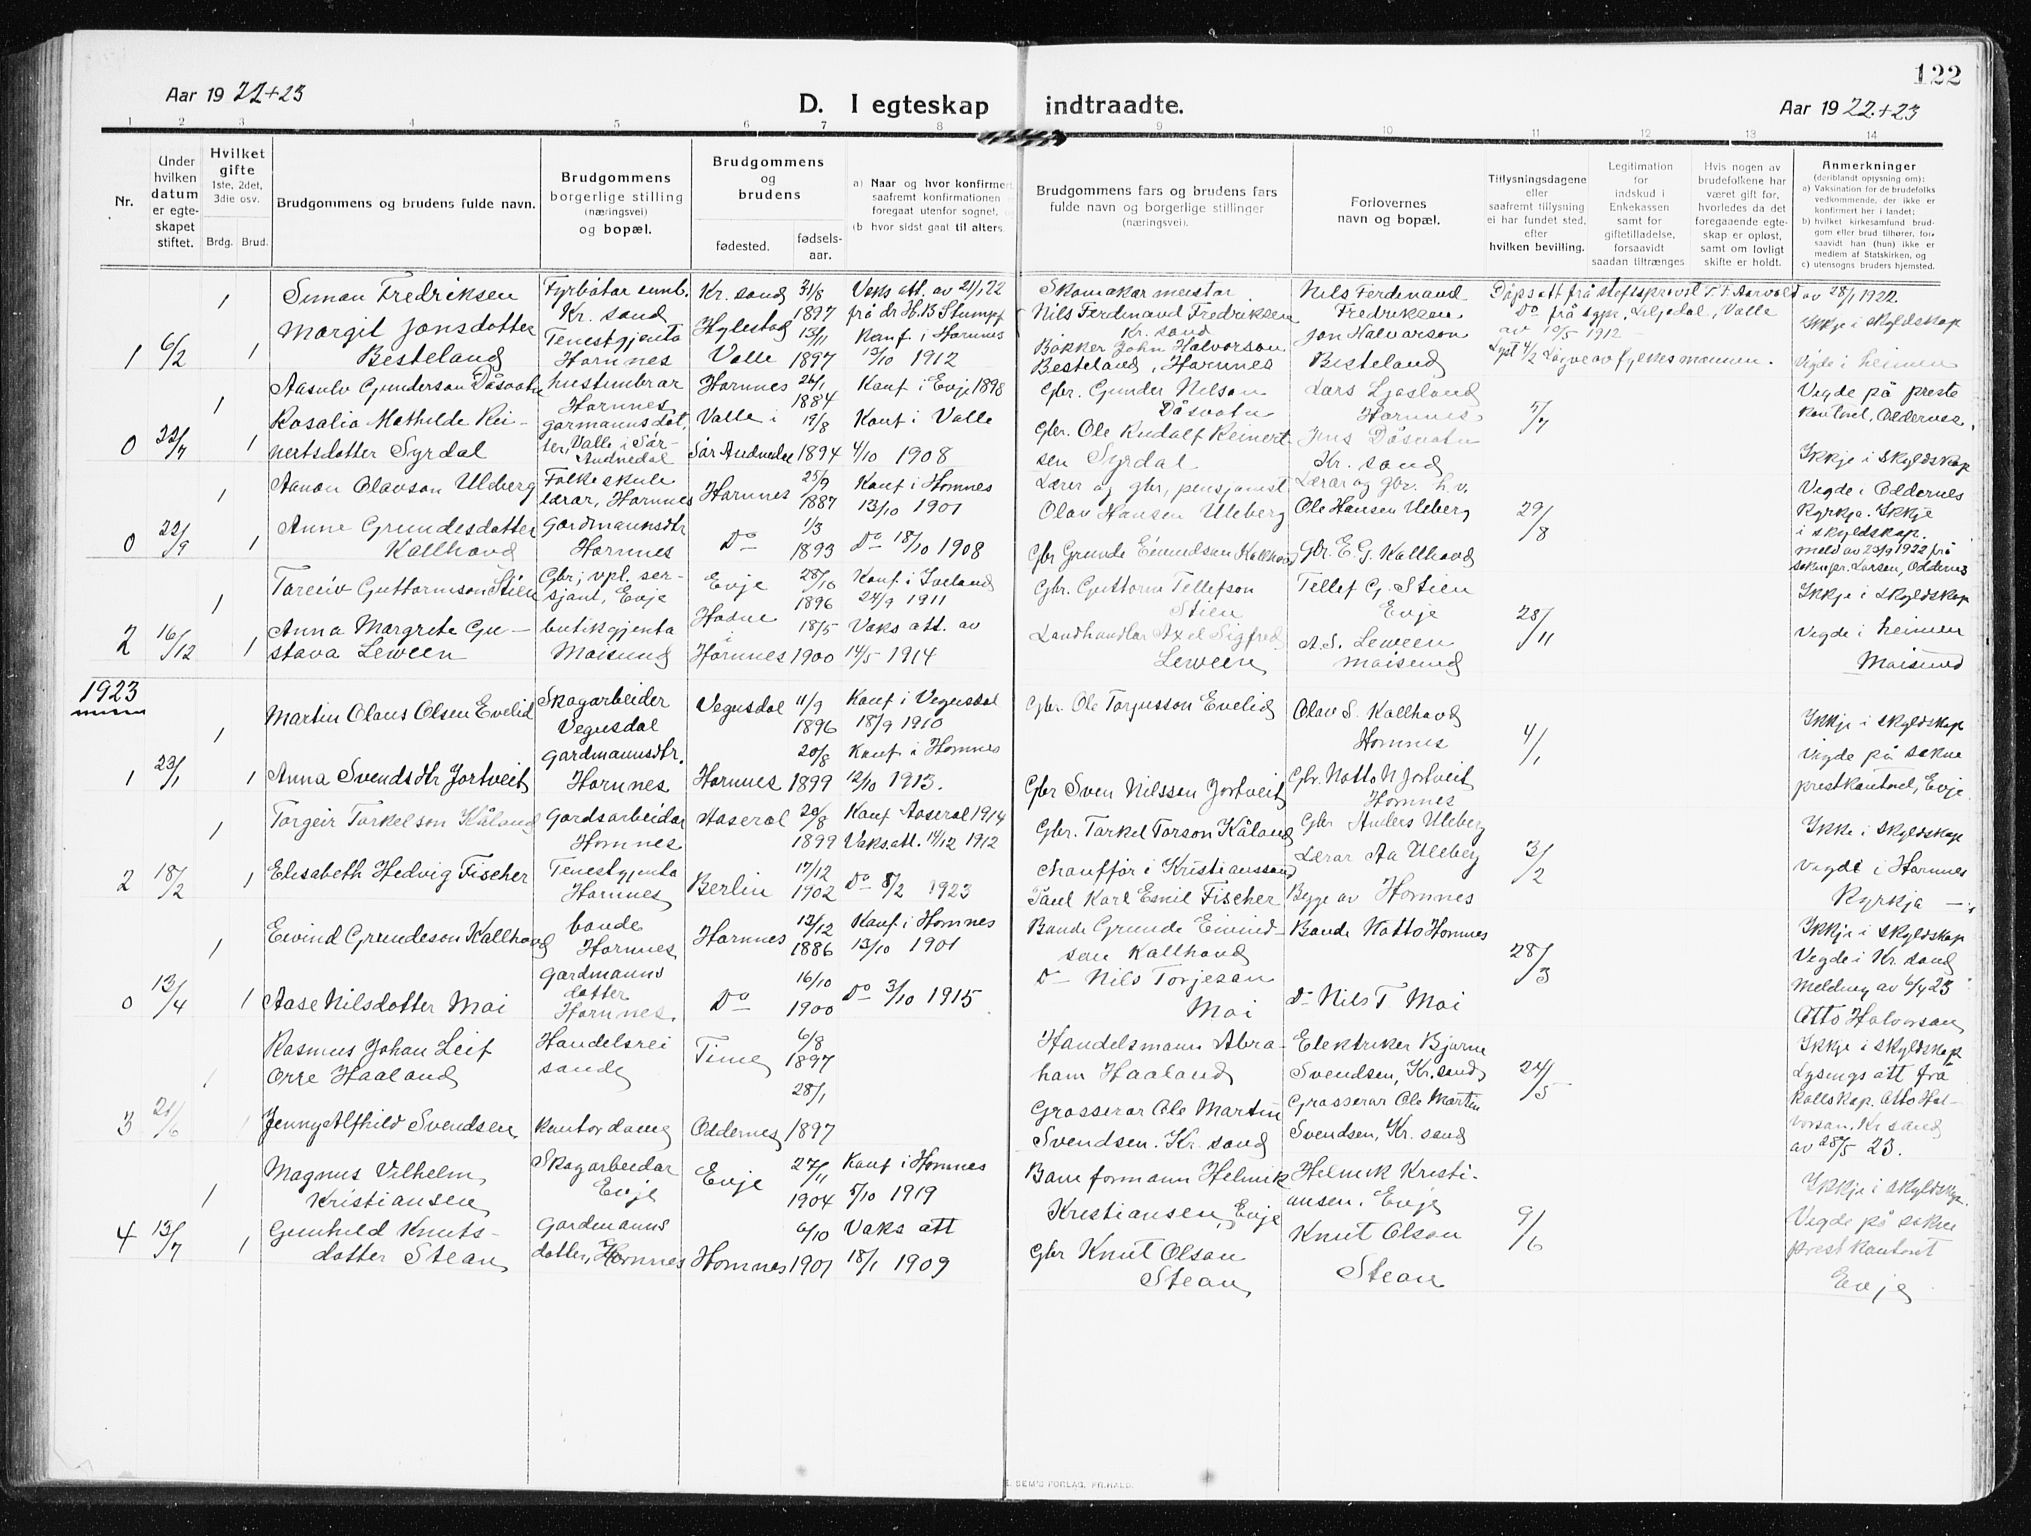 122
Aar 19 22+23
D. I egteskap indtraadte.
Aar 19 22+23
1 2 3 4 5 6 7 8 9 10 11 12 13 14
Nr.
Under hvilken datum er egteskapet stiftet.
Hvilket gifte 1ste, 2det, 3die osv.
Brdg. Brud.
Brudgommens og brudens fulde navn.
Brudgommens borgerlige stilling (næringsvei) og bopæl.
Brudgommens og brudens
fødested. fødsels-aar.
a) Naar og hvor konfirmert
saafremt konfirmationen
foregaat utenfor sognet,
b) hvor sidst gaat til alters.
Brudgommens fars og brudens fars
fulde navn og borgerlige stillinger
(næringsvei).
Forlovernes
navn og bopæl.
Tillysningsdagene
eller
saafremt tillysning
ei har fundet sted,
efter
hvilken bevilling.
Legitimation
for
indskud i
Enkekassen
samt for
giftetilladelse,
forsaavidt
saadan tiltrænges
Hvis nogen av
brudefolkene har
været gift før,
hvorledes da det
foregaaende egte-
skap er opløst,
samt om lovligt
skifte er holdt.
Anmerkninger
(deriblandt oplysning om):
a) Vaksination for de brudefolks
vedkommende, der ikke er
konfirmert her i landet;
b) hvilket kirkesamfund brud-
gom eller brud tilhører, for-
saavidt han (hun) ikke er
medlem av Statskirken, og
c) utensogns bruders hjemsted.
1 6/2 1 1
Simon Fredriksen
Margit Jonsdotter
Besteland
Kr. sand
Tenestgjenta
Hornnes
Kr. sand 31/8 1897
Hylestad 13/11
Valle 1897
Vaks att. av 21/1 22
frå dr H. B. Stumpf
Konf. i Hornnes
13/10 1912
Skomakar meistar
Nils Ferdinand Fredriksen
Kr. sand
Bøkker John Halvorson
Besteland, Hornnes
Nils Ferdinand
Fredriksen
Jon Halvorson
Besteland
Dåpsatt frå stiftsprovst T. F. Aarvold av 28/1 1922
Do frå sypr. Liljedal, Valle
av 10/5 1912
Lyst 4/2 Løyve av fylkesmannen.
Ikkje i skyldskap
Vigde i heimen
0 22/7 1 1
Aasulv Gunderson Dåsvatn
Rosalia Mathilde Rei-
nertsdotter Syrdal
Hornnes
gardmannsdot-
ter, Valle i Sør-
Audnedal
Hornnes 26/1 1884
Valle i 19/8
Sør Audnedal 1894
Konf i Evje 1898
Konf i Valle
4/10 1908
Gbr. Gunder Nilson
Dåsvatn
Gbr. Ole Rudolf Reinert-
sen Syrdal
Lars Ljosland
Hornnes
Jens Dåsvatn
Kr. sand
5/7
Vegde på preste
kontoret, Oddernes.
Ikkje i skyldskap
0 22/9 1 1
Aanon Olavson Uleberg
Anne Grundesdotter
Kallhovd
Folkeskule
lærar, Hornnes
Gardmannsdtr
Hornnes
Hornnes 25/9 1887
Do 1/3 1893
Konf i Hornnes
13/10 1901
Do 18/10 1908
Lærer og gbr, pensjonist
Olav Hansen Uleberg
Gbr Grunde Eivindson Kallhovd
Lærar og gbr. h.v.
Ole Hansen Uleberg
Gbr. E. G. Kallhovd
29/8
Vegde i Oddernes
Kyrkja. Ikkje
i skyldskap.
meld av 23/9 1922 frå
soknepr. Larsen, Oddernes
2 16/12 1 1
Tareiv Guttormson Stien
Anna Margrete Gu-
stava Leween
Gbr; vpl. ser-
sjant, Evje
butikgjenta
Moisund
Evje 28/10 1896
i 18/5
Hornnes 1900
Konf i Iveland
24/9 1911
Vaks att. av
14/5 1914
Gbr. Guttorm Tellefson
Stien
Landhandlar Axel Sigfred
Leween
Tellef G. Stien
Evje
A. S. Leween
Moisund
28/11
Ikkje i skyldskap
Vegde i heimen
Moisund
1923
1 23/1 1 1
Martin Olaus Olsen Evelid
Anna Svendsdtr Jortveit
Skogarbeider
Vegusdal
Gardmannsdtr.
Hornnes
Vegusdal 11/9 1896
20/8
Hornnes 1899
Konf i Vegusdal
18/9 1910
Konf i Hornnes
12/10 1913.
Gbr. Ole Torjusson Evelid
Gbr Sven Nilsson Jortveit
Olav S. Kallhovd
Hornnes
Gbr. Notto N Jortveit
Hornnes
4/1
Ikkje i skyldskap
Vigde på sokne
prestkontoret, Evje
2 18/2 1 1
Torgeir Torkelson Kåland
Elisabeth Hedvig Fischer
Gardsarbeidar
Hornnes
Tenestgjenta
Hornnes
Aaseral 20/8 1899
17/12
Berlin 1902
Konf Aaseral 1914
Vaks.att. 14/12 1912
Do 8/2 1923
Gbr. Tarkel Torson Kåland
Chauffør i Kristianssand
Paul Karl Emil Fischer
Gbr Anders Uleberg
Lærar Aa Uleberg
Bygg av Hornnes
3/2
Ikke i skyldskap
Vigde i Hornnes
Kyrkja
0 13/4 1 1
Eivind Grundeson Kallhovd
Aase Nilsdotter Moi
bonde
Hornnes
Gardmanns
dotter
Hornnes
Hornnes 12/12 1886
16/10
Do 1900
Konf i Hornnes
13/10 1901
Do 3/10 1915
Bonde Grunde Eivind-
son Kallhovd
Do Nils Torjeson
Moi
Bonde Notto Hornnes
Do Nils T. Moi
28/3
Ikkje i skyldskap
Vegde i Kr. sand
Melding av 6/4 23
Otto Halvorsen
3 21/6 1 1
Rasmus Johan Leif
Orre Haaland
Jenny Alfhild Svendsen
Handelsrei
sande
Kontordame
Time 6/8 1897
28/1
Oddernes 1897
Handelsmann Abra-
ham Haaland
Grosserar Ole Martin
Svendsen. Kr. sand
Elektriker Bjarne
Svendsen, Kr. sand
Grosserar Ole Martin
Svendsen, Kr. sand
24/5
Ikkje i skyldskap
Lysings att frå
Otto Hal-
vorsen. Kr sand
av 28/5 23.
4 13/7 1 1
Magnus Vilhelm
Kristiansen
Gunhild Knuts-
dotter Stean
Skogarbeidar
Evje
Gardmanns
dotter, Hornnes
Evje 27/11 1904
6/10
Hornnes 1901
Konf i Hornnes
5/10 1919
Vaks att
18/1 1909
Baneformann Helmik
Kristiansen, Evje
Gbr Knut Olson
Stean
Helmik Kristi-
ansen, Evje
Knut Olson
Stean
9/6
Ikkje i skyldskap.
Vegde på sokne
prestkontoret
Evje
E. SEM'S FORLAG, FR.HALD.